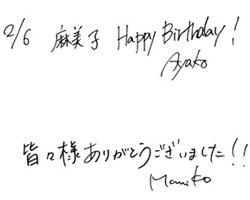 2/6 麻美子 Happy Birthday!
Ayako
皆々様ありがとうございました!!
Mamiko